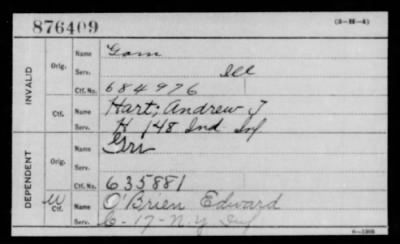 876409
(3-H-4)
INVALID
Orig.
Name
Serv. Ill
Ctf. No. 684976
Ctf.
Name Hart, Andrew J
Serv. H 148 Ind Inf
DEPENDENT
Orig.
Name
Serv.
Ctf. No. 635881
W
Ctf.
Name O'Brien Edward
Serv. C-17-N.Y Inf